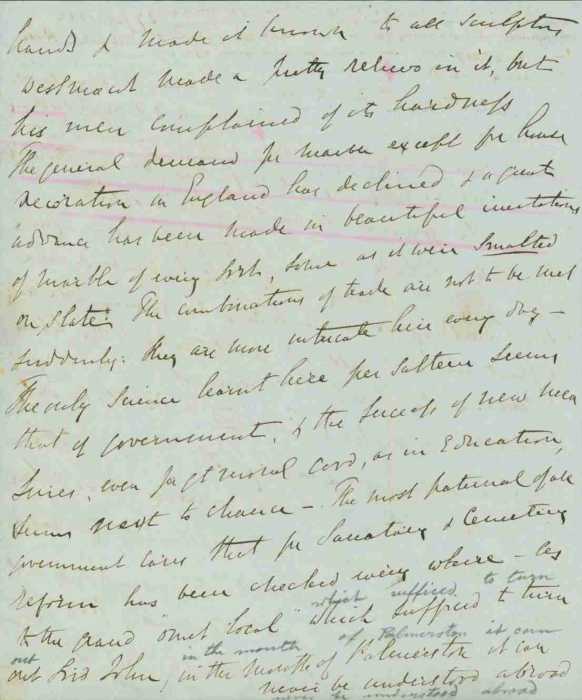 hands & made it known to all sculptors
Westmacott made a pretty relievo in it, but
his men complained of its hardness
The general demand for marble except for house
decoration in England has declined & a great
advance has been made in beautiful imitations
of marble of every sort, some as it were smalted
on slate. The combinations of trade are not to be met
suddenly: they are more intricate here every day –
The only science learnt here per saltem seems
that of government, & the success of new mea
sures, even for gt moral good, as in Education,
seems next to chance – The most paternal of all
government cares that for Sanatory & Cemetery
reform has been checked every where –
which sufficed to turn
to the grand "omit local" which sufficed to turn
in the month of Palmerston it can
out
out Lord John, in the mouth of Palmerston it can
never be understood abroad
never be understood abroad